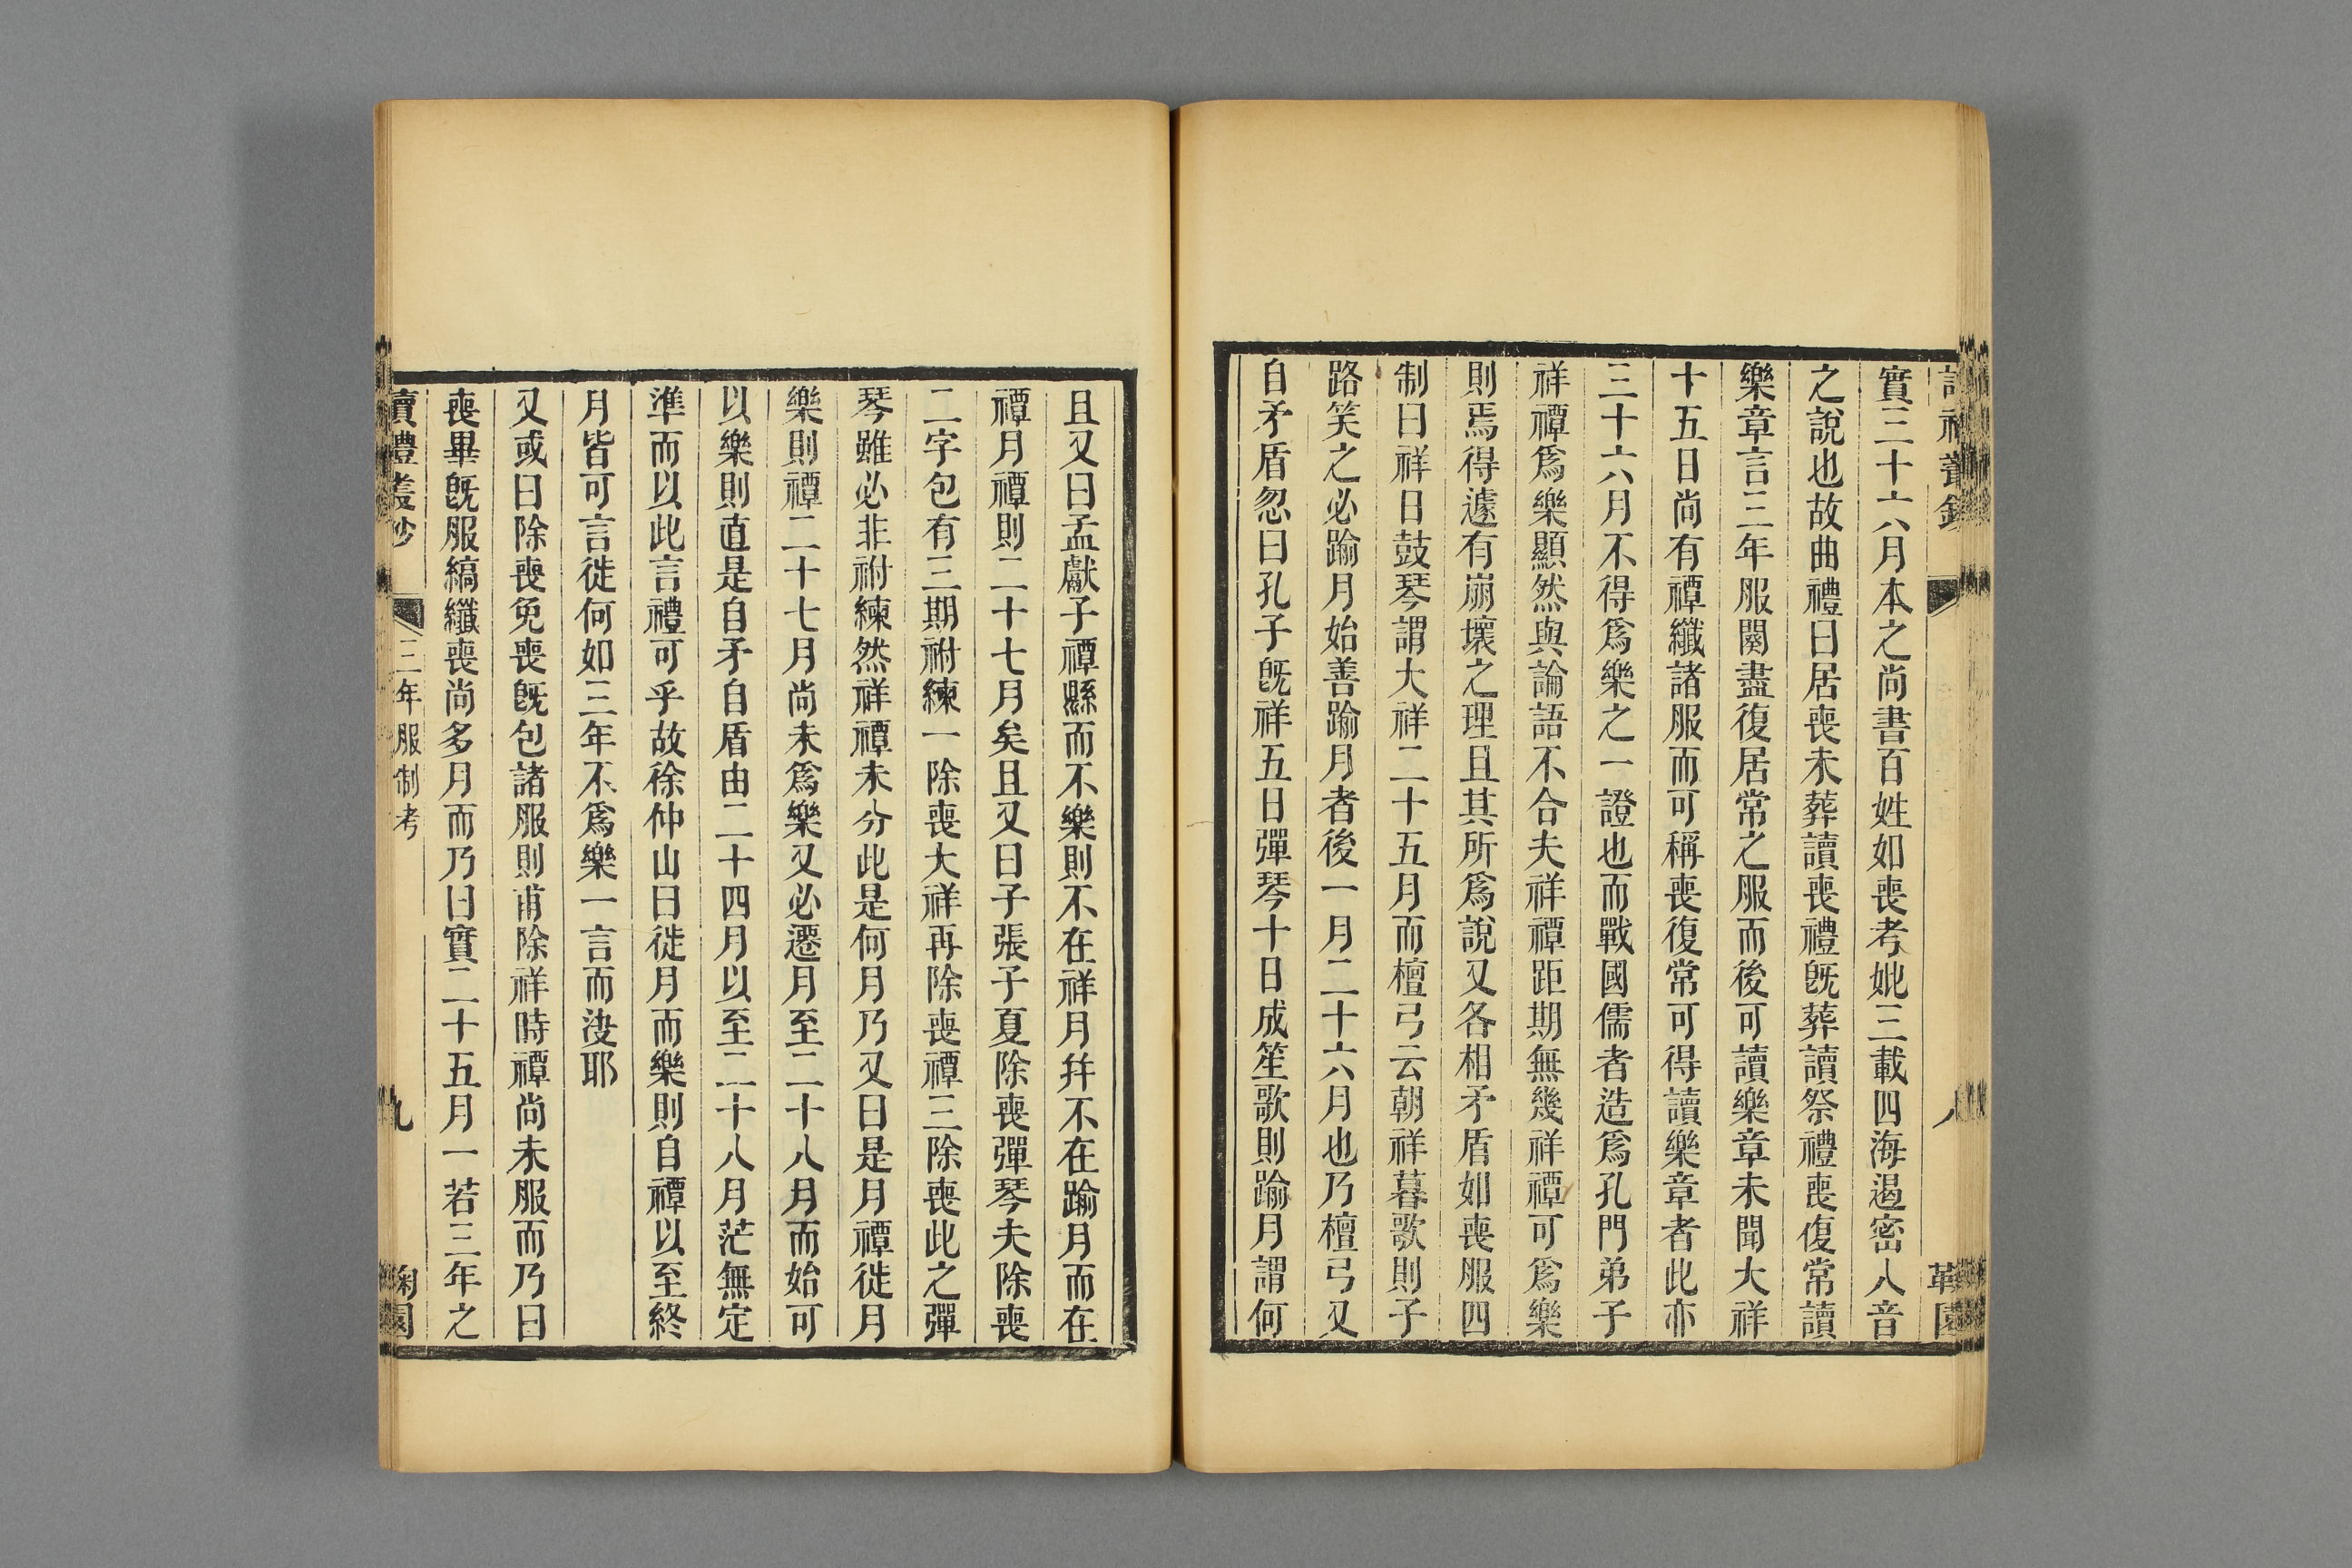 實三十六月本之尚書百姓如喪考妣三載四海遏密八音
之說也故曲禮曰居喪未葬讀喪禮旣葬讀祭禮喪復常讀
樂章言三年服闋盡復居常之服而後可讀樂章未聞大祥
十五日尚有禫纖諸服而可稱喪復常可得讀樂章者此亦
三十六月不得爲樂之一證也而戰國儒者造爲孔門弟子
祥禫爲樂顯然與論語不合夫祥禫距期無幾祥禫可爲樂
則焉得遽有崩壞之理且其所爲說又各相矛盾如喪服四
制曰祥日鼓琴謂大祥二十五月而檀弓云朝祥暮歌則子
路笑之必踰月始善踰月者後一月二十六月也乃檀弓又
自矛盾忽曰孔子旣祥五日彈琴十日成笙歌則踰月謂何
且又曰孟獻子禫縣而不樂則不在祥月幷不在踰月而在
禫月禫則二十七月矣且又曰子張子夏除喪彈琴夫除喪
二字包有三期祔練一除喪大祥再除喪禫三除喪此之彈
琴雖必非祔練然祥禫未分此是何月乃又曰是月禫徙月
樂則禫二十七月尚未爲樂又必遷月至二十八月而始可
以樂則直是自矛自盾由二十四月以至二十八月茫無定
準而以此言禮可乎故徐仲山曰徙月而樂則自禫以至終
月皆可言徙何如三年不爲樂一言而決耶
又或曰除喪免喪旣包諸服則甫除祥時禫尚未服而乃曰
喪畢旣服縞纖喪尚多月而乃曰實二十五月一若三年之
讀禮叢鈔
三年服制考
九